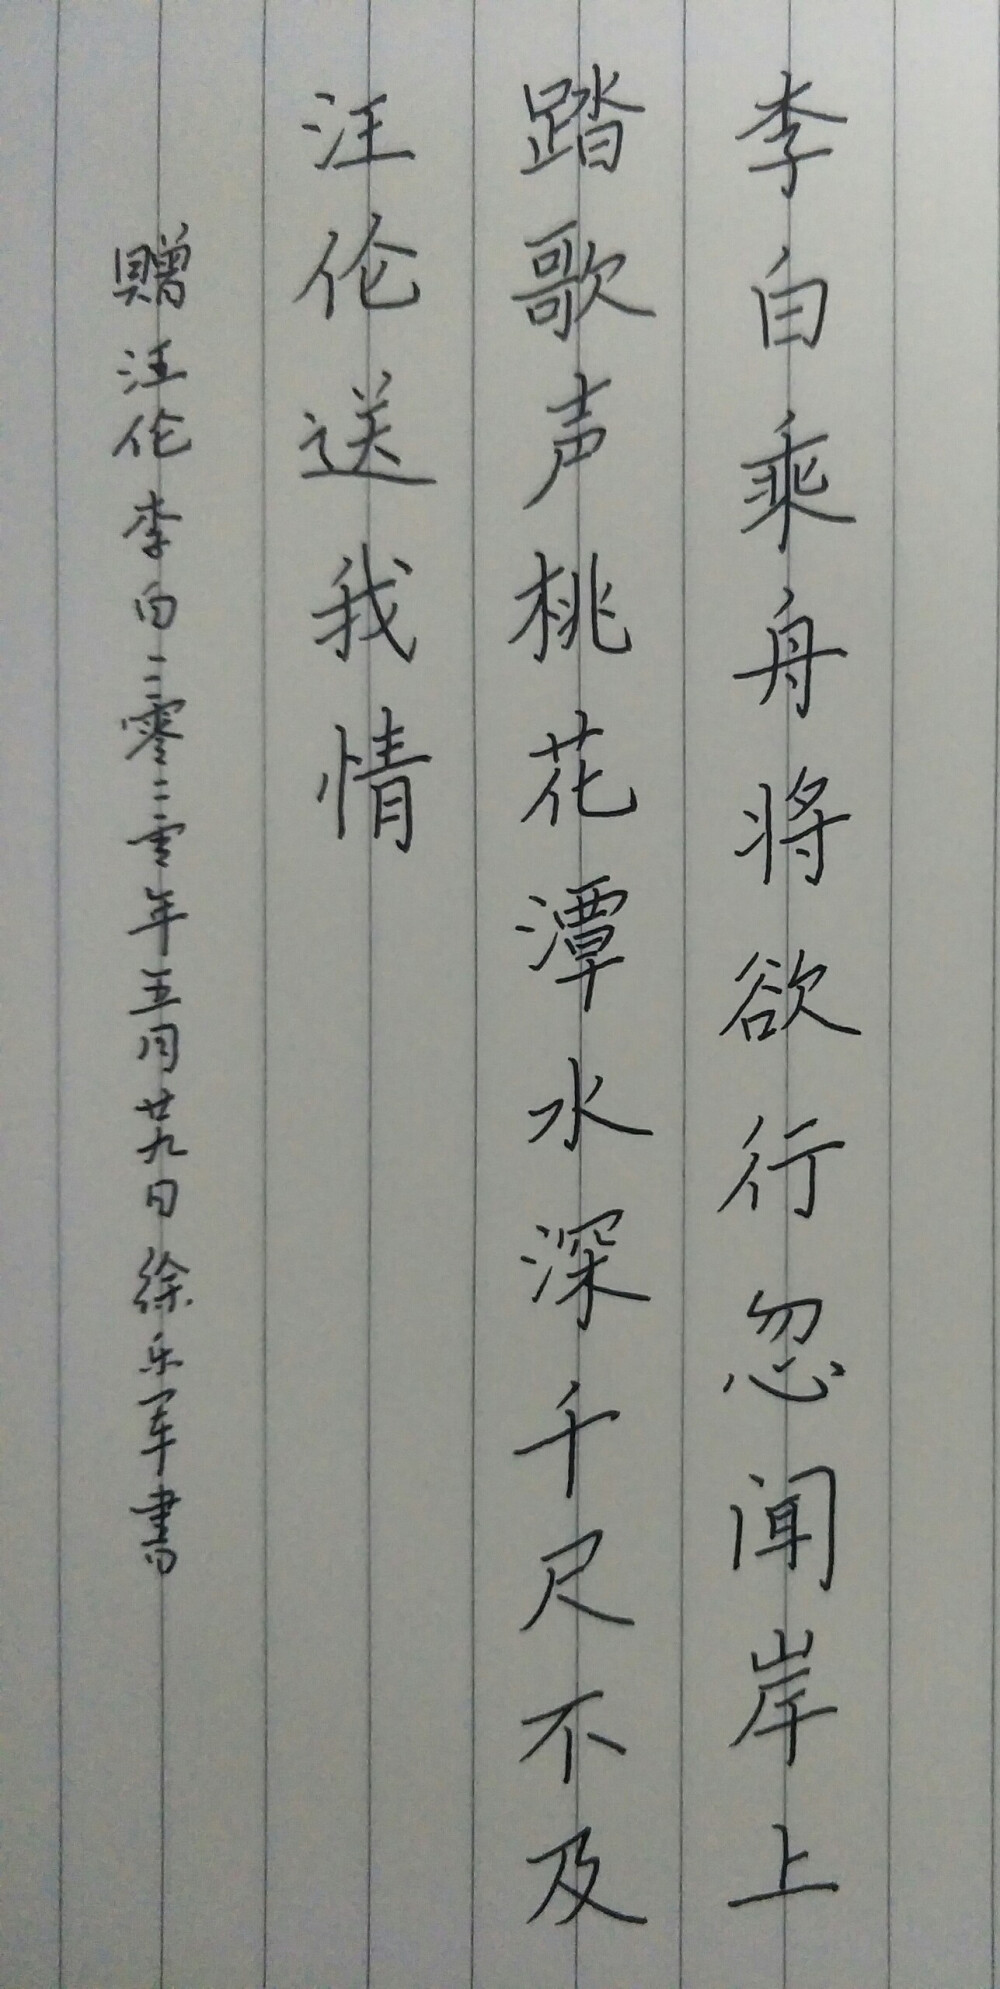 李白乘舟将欲行忽闻岸上
踏歌声桃花潭水深千尺不及
汪伦送我情
赠汪伦李白二零二零年五月廿九日徐乐军书